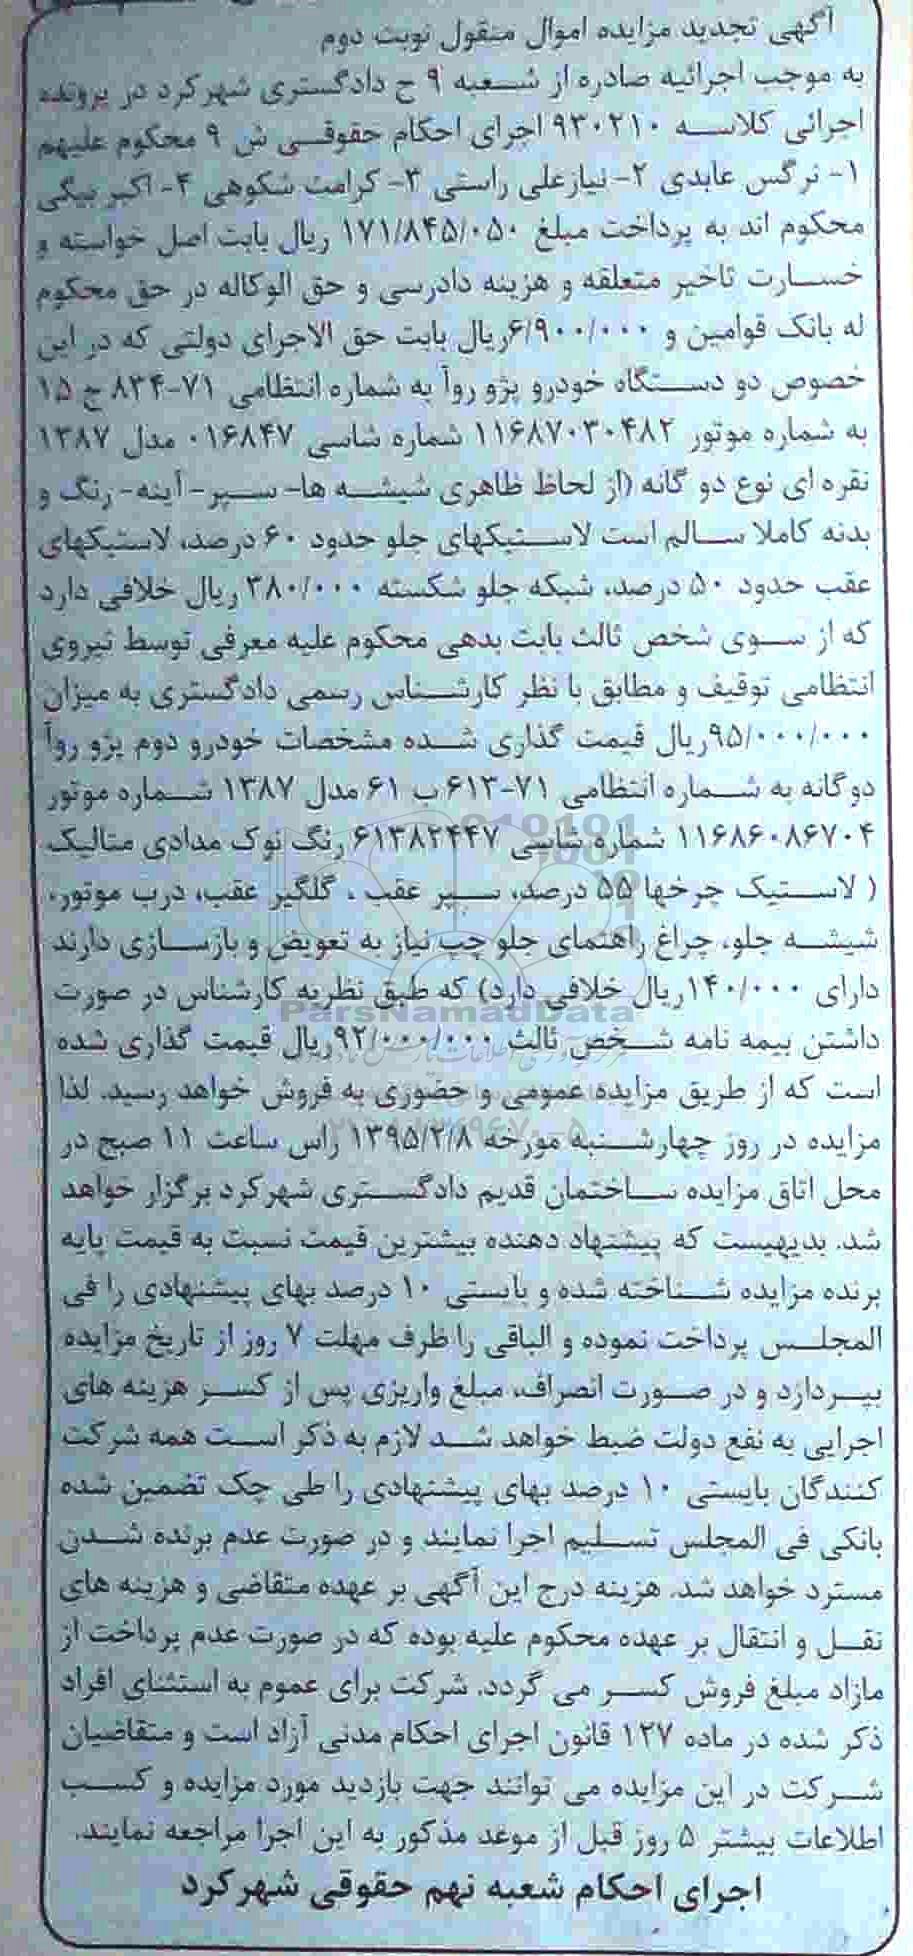 آگهی تجدید مزایده اموال منقول نوبت دوم
به موجب اجرائیه صادره از شعبه ۹ ح دادگستری شهرکرد در پرونده
اجرائی کلاسه ۹۳۰۲۱۰ اجرای احکام حقوقی ش ۹ محکوم علیهم
۱- نرگس عابدی ۲- نیازعلی راستی ۳- کرامت شکوهی ۴- اکبر بیگی
محکوم اند به پرداخت مبلغ ۱۷۱/۸۴۵/۰۵۰ ریال بابت اصل خواسته و
خسارت تاخیر متعلقه و هزینه دادرسی و حق الوکاله در حق محکوم
له بانک قوامین و ۶/۹۰۰/۰۰۰ریال بابت حق الاجرای دولتی که در این
خصوص دو دستگاه خودرو پژو روآ به شماره انتظامی ۷۱-۸۳۴ ج ۱۵
به شماره موتور ۱۱۶۸۷۰۳۰۴۸۲ شماره شاسی ۰۱۶۸۴۷ مدل ۱۳۸۷
نقره ای نوع دو گانه (از لحاظ ظاهری شیشه ها- سپر-آینه-رنگ و
بدنه کاملا سالم است لاستیکهای جلو حدود ۶۰ درصد، لاستیکهای
عقب حدود ۵۰ درصد، شبکه جلو شکسته ۳۸۰/۰۰۰ ریال خلافی دارد
که از سوی شخص ثالث بابت بدهی محکوم علیه معرفی توسط نیروی
انتظامی توقیف و مطابق با نظر کارشناس رسمی دادگستری به میزان
۹۵/۰۰۰/۰۰۰ریال قیمت گذاری شده مشخصات خودرو دوم پژو روآ
دوگانه به شماره انتظامی ۷۱-۶۱۳ ب ۶۱ مدل ۱۳۸۷ شماره موتور
۱۱۶۸۶۰۸۶۷۰۴ شماره شاسی ۶۱۳۸۲۴۴۷ رنگ نوک مدادی متالیک
( لاستیک چرخها ۵۵ درصد، سپر عقب ، گلگیر عقب، درب موتور،
شیشه جلو، چراغ راهنمای جلو چپ نیاز به تعویض و بازسازی دارند
دارای ۱۴۰/۰۰۰ریال خلافی دارد) که طبق نظریه کارشناس در صورت
ParsNamadData
داشتن بیمه نامه شخص ثالث ۹۲/۰۰۰/۰۰۰ریال قیمت گذاری شده
است که از طریق مزایده عمومی و حضوری به فروش خواهد رسید. لذا
مزایده در روز چهارشنبه مورخه ۱۳۹۵/۲/۸ راس ساعت ۱۱ صبح در
محل اتاق مزایده ساختمان قدیم دادگستری شهرکرد برگزار خواهد
شد. بدیهیست که پیشنهاد دهنده بیشترین قیمت نسبت به قیمت پایه
برنده مزایده شناخته شده و بایستی ۱۰ درصد بهای پیشنهادی را فی
المجلس پرداخت نموده و الباقی را ظرف مهلت ۷ روز از تاریخ مزایده
بپردازد و در صورت انصراف، مبلغ واریزی پس از کسر هزینه های
اجرایی به نفع دولت ضبط خواهد شد لازم به ذکر است همه شرکت
کنندگان بایستی ۱۰ درصد بهای پیشنهادی را طی چک تضمین شده
بانکی فی المجلس تسلیم اجرا نمایند و در صورت عدم برنده شدن
مسترد خواهد شد. هزینه درج این آگهی بر عهده متقاضی و هزینه های
نقل و انتقال بر عهده محکوم علیه بوده که در صورت عدم پرداخت از
مازاد مبلغ فروش کسر می گردد. شرکت برای عموم به استثنای افراد
ذکر شده در ماده ۱۲۷ قانون اجرای احکام مدنی آزاد است و متقاضیان
شرکت در این مزایده می توانند جهت بازدید مورد مزایده و کسب
اطلاعات بیشتر ۵ روز قبل از موعد مذکور به این اجرا مراجعه نمایند.
اجرای احکام شعبه نهم حقوقی شهرکرد